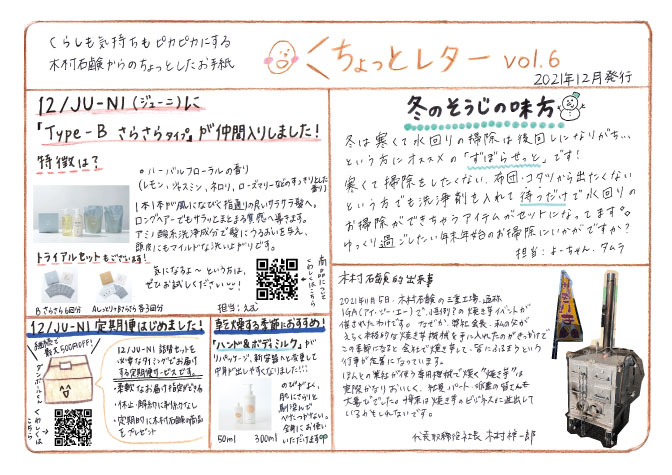 くらしも気持ちもピカピカにする
木村石鹸からのちょっとしたお手紙
くちょっとレター vol.6
2021年12月発行
12/JU-NI(ジューニ)に
「Type-B さらさらタイプ」が仲間入りしました!
特徴は?
ハーバルフローラルの香り
(レモン、ジャスミン、ネロリ、ローズマリーなどのすっきりとした香り)
1本1本が風になびく指通りの良いサラサラ髪へ。
ロングヘアーでもサラッとまとまる質感へ導きます。
アミノ酸系洗浄成分で髪にうるおいを与え、
頭皮にもマイルドな洗い上がりです。
トライアルセットもございます!
気になるよ〜という方は、
ぜひお試しください!
B さらさら6回分
Aしっとり・Bさらさら各3回分
担当:えむ
商品について
くわしくはこちら
冬のそうじの味方
冬は寒くて水回りの掃除は後回しになりがち…
という方にオススメの「ずぼらせっと」です!
寒くて掃除をしたくない、布団・コタツから出たくない
という方でも洗浄剤を入れて待つだけで水回りの
お掃除ができちゃうアイテムがセットになってます。
ゆっくり過ごしたい年末年始のお掃除にいかがですか?
担当:よーちゃん、タムラ
12/JU-NI 定期便はじめました!
継続で
最大500円OFF!
ダンボールくん
くわしくは
こちら
12/JU-NI 詰替セットを
必要なタイミングでお届け
する定期便サービスです。
・柔軟なお届け設定ができる
・休止・解約に制限なし
・定期的に木村石鹸の商品
をプレゼント
乾燥する季節におすすめ!
「ハンド&ボディミルク」が
リパッケージ、新容器へと変更して
今月が出しやすくなりました!!!
のびがよく、
肌にさらりと
馴染んで
べたつかない。
全身にお使い
いただけます
50ml
300ml
木村石鹸的出来事
2021年11月5日、木村石鹸の三重工場、通称
IGA(アイ・ジー・エー)で、恒例の焼き芋イベントが
催されたわけです。
この季節になると会社で焼き芋して、皆にふるまうという
行事が定着になっています。
代表取締役社長 木村祥一郎